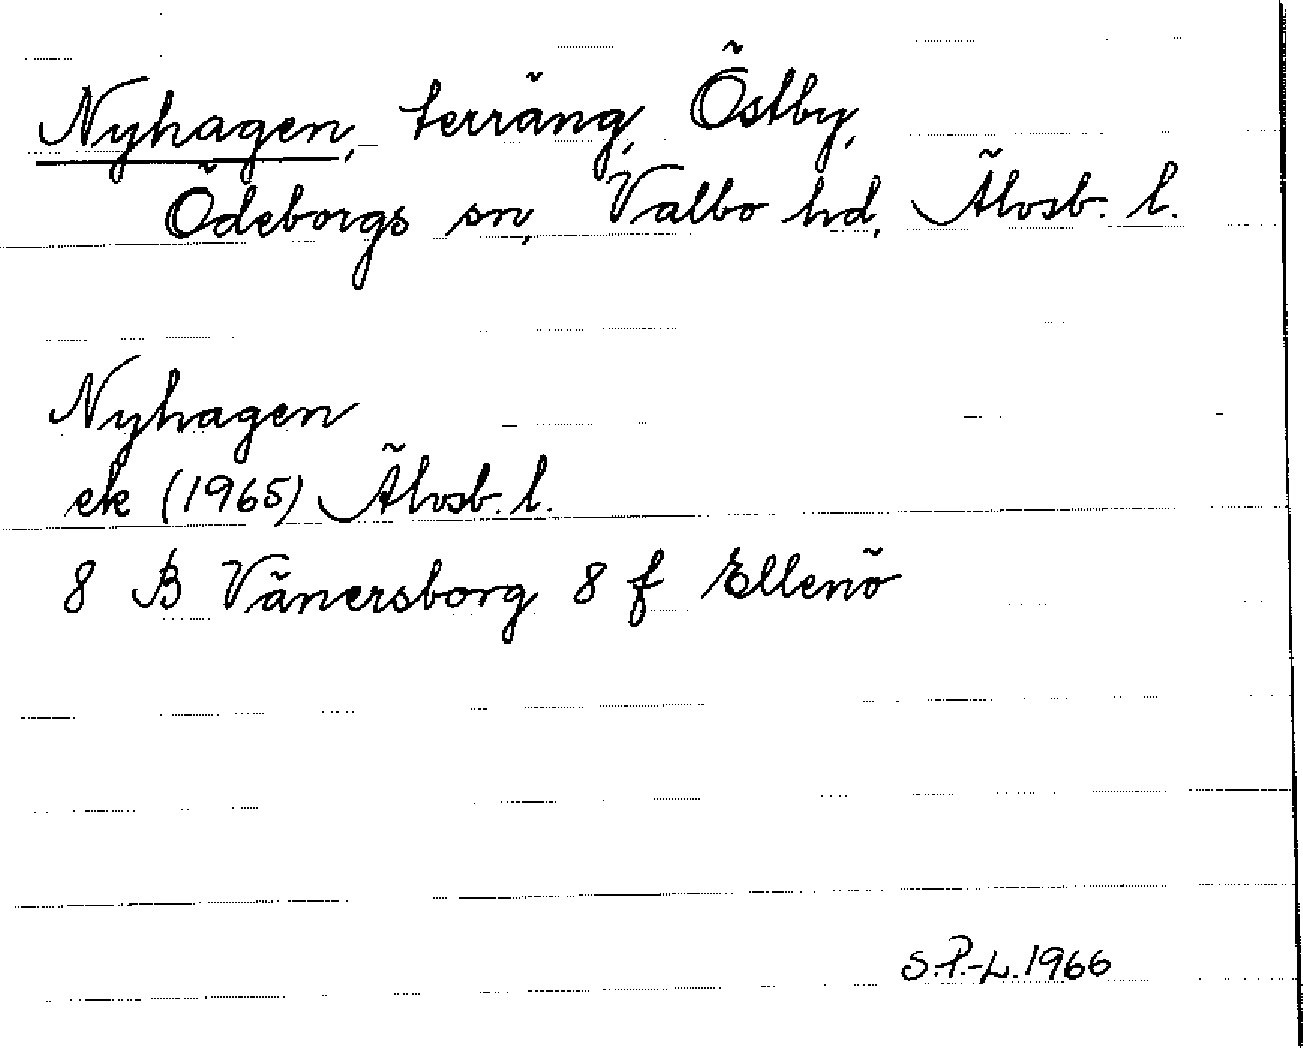 Nyhagen, terräng, Östby,
Ödeborgs sn, Valbo hd, Älvsb. l.
Nyhagen
ek (1965) Älvsb. l.
8 B Vänersborg 8 f Ellenö
S.P.-L. 1966